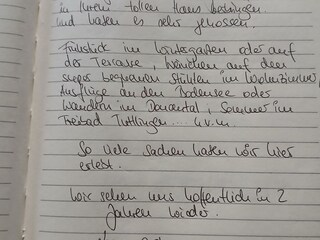 in Ihrem tollen Haus verbringen
und haben es sehr genossen.
Frühstück im Wintergarten oder auf
der Terrasse, Weinchen auf den
super bequemen Stühlen im Wohnzimmer,
Ausflüge an den Bodensee oder
Wandern im Donautal, Sommer im
Freibad Tuttlingen .... u.v.m.
So viele Sachen haben wir hier
erlebt.
Wir sehen uns hoffentlich in 2
Jahren wieder.